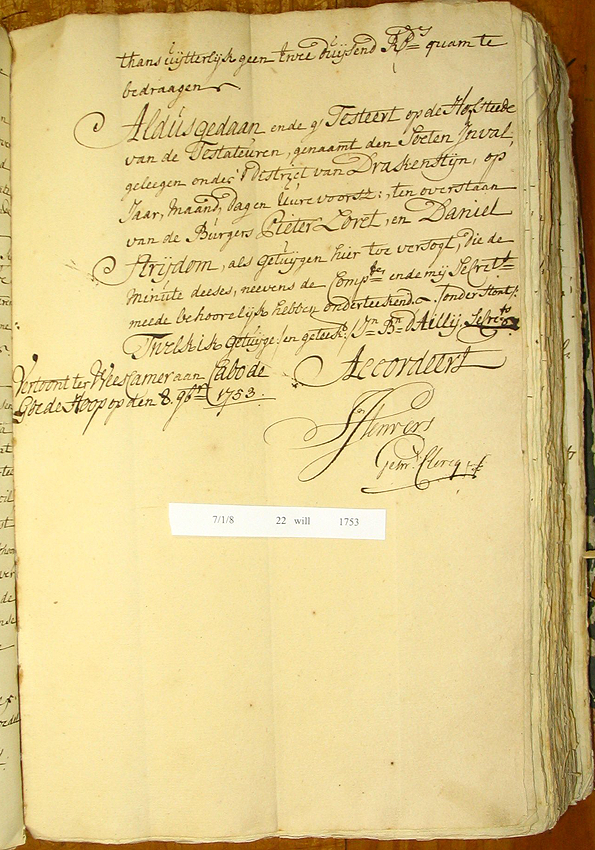 thans uijtterlijk geen twee duijsend Rds quam te
bedraagen
Aldus gedaan ende g' Testeert op de Hofsteede
van de Testateuren, genaamt den Soeten Inval
geleegen onder 't district van Drakenstijn, op
Jaar, maand, dag en Uure voorsz: ten overstaan
van de Burgers Pieter Loret, en Daniel
Strijdom, als getuijgen hier toe versogt, die de
Minute deeses, neevens de Compten ende mij Secrets
meede behoorelijk hebben onderteekend. /onderstont/
Twelk ik getuijge /en geteekt/ Jn Bn D'Aillij, Secrets
Accordeert
Vertoont ter Weeskamer aan Cabo de
Goede Hoop op den 8. 9br 1753.
Gesw. Clercq
7/1/8 22 will 1753